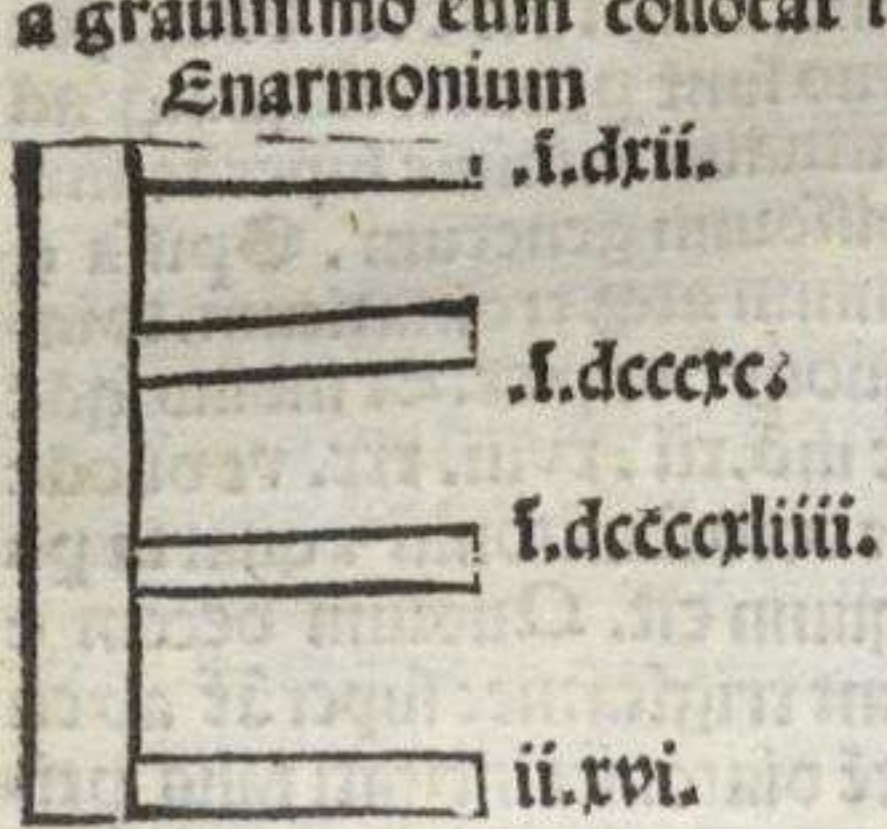 a grauissimo eum collocat
Enarmonium
.i.dxii.
.i.dcccxc.
i.dccccxliiii.
ii.xvi.